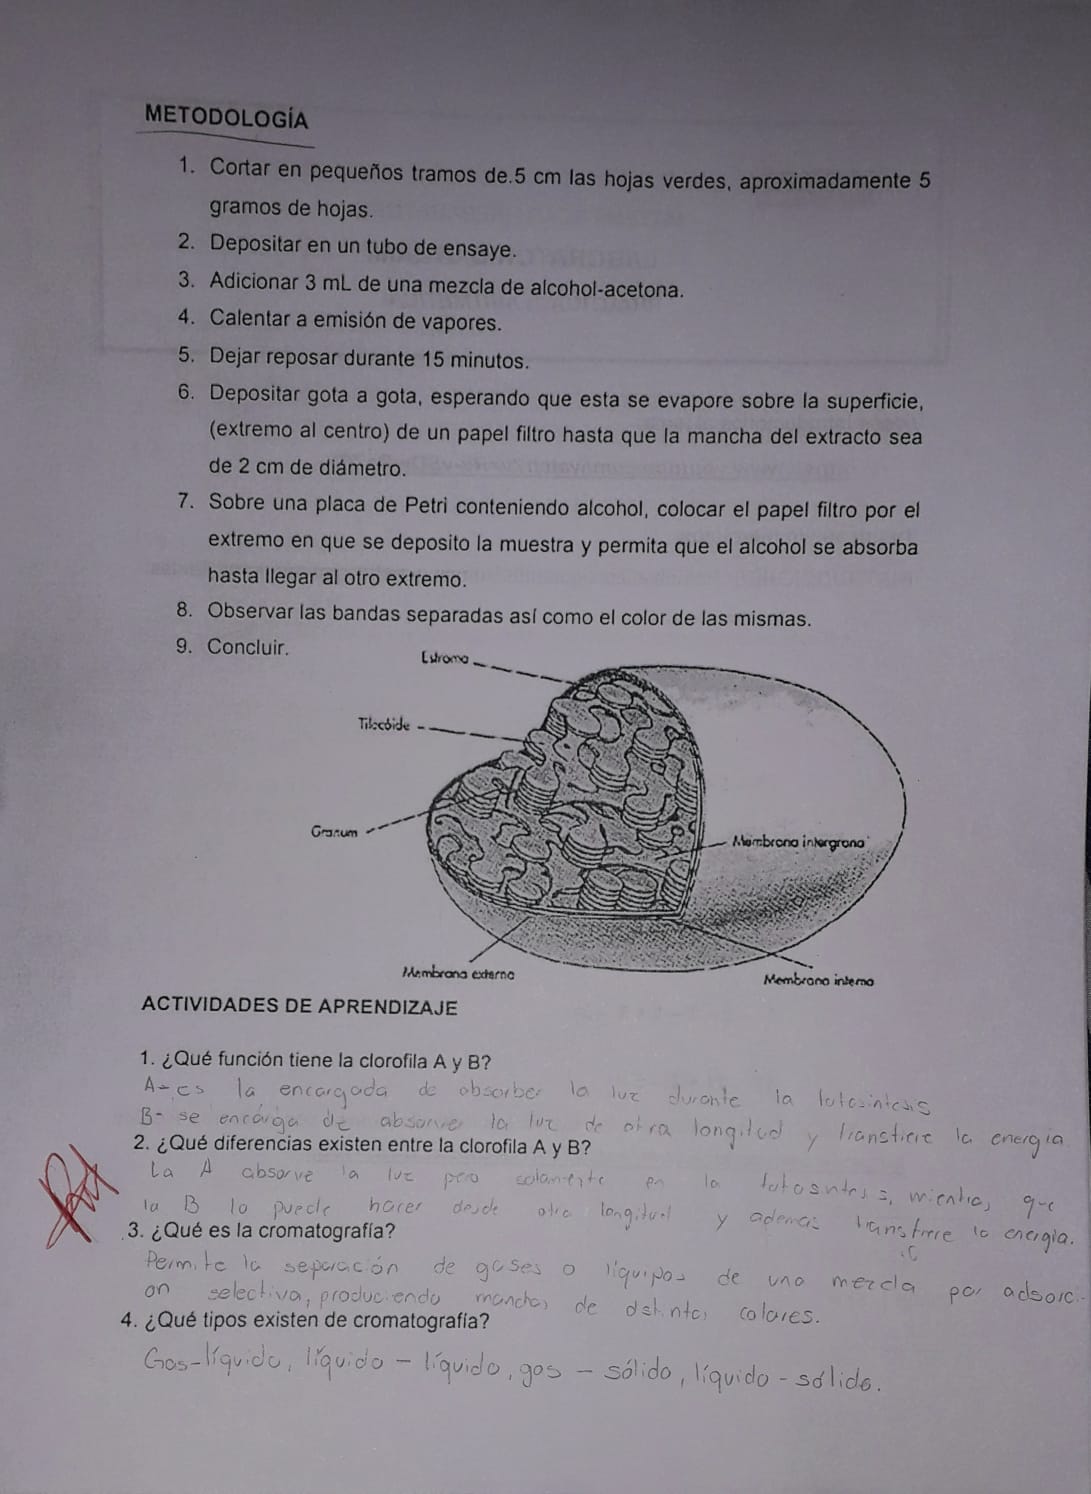 METODOLOGÍA
1. Cortar en pequeños tramos de.5 cm las hojas verdes, aproximadamente 5
gramos de hojas.
2. Depositar en un tubo de ensaye.
3. Adicionar 3 mL de una mezcla de alcohol-acetona.
4. Calentar a emisión de vapores.
5. Dejar reposar durante 15 minutos.
6. Depositar gota a gota, esperando que esta se evapore sobre la superficie,
(extremo al centro) de un papel filtro hasta que la mancha del extracto sea
de 2 cm de diámetro.
7. Sobre una placa de Petri conteniendo alcohol, colocar el papel filtro por el
extremo en que se deposito la muestra y permita que el alcohol se absorba
hasta llegar al otro extremo.
8. Observar las bandas separadas así como el color de las mismas.
9. Concluir.
Estroma
Tilacóide
Granum
Membrana intergrana
Membrana externa
Membrana interna
ACTIVIDADES DE APRENDIZAJE
1. ¿Qué función tiene la clorofila A y B?
A- es la encargada de absorber la luz durante la fotosintesis
B- se encarga de absorver la luz de otra longitud y transfiere la energia
2. ¿Qué diferencias existen entre la clorofila A y B?
La A absorve la luz pero solamente en la fotosintesis, mientras que
la B lo puede hacer desde otra longitud y ademas transfiere la energia.
3. ¿Qué es la cromatografía?
Permite la separación de gases o liquipos de una mezcla por adsorci-
on selectiva, produciendo manchas de distintos colores.
4. ¿Qué tipos existen de cromatografía?
Gas-líquido, líquido - líquido, gas - sólido, líquido - sólido.